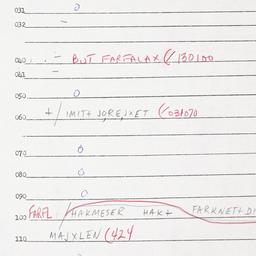 031 0
032 -
040 - BUT FARFALAX (/ 130100
041 -
050 0
060 +/ IMITH JOREJXET (/031070
070 0
080 0
090 0
100 FARFL /HAKMESER HAK+ FARKNET+DI
110 MAJXLEN (424